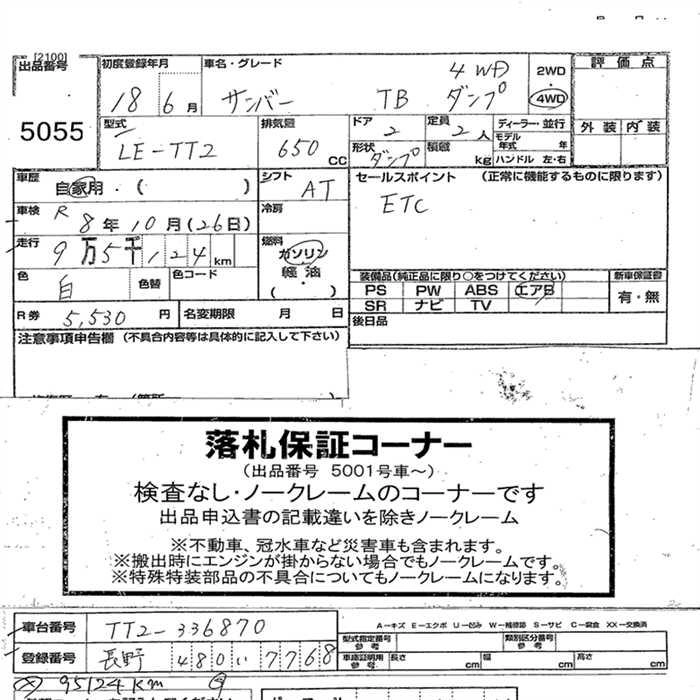 [2100]
出品番号
5055
初度登録年月
18 6月
車名・グレード
サンバー TB 4WD ダンプ
2WD
・
4WD
評価点
外装 内装
型式
LE-TT2
排気量
650 CC
ドア
2
定員
2人
ディーラー・並行
モデル年式 年
ハンドル 左・右
形状
ダンプ
積載
kg
車歴
自家用・( )
シフト
AT
セールスポイント (正常に機能するものに限ります)
ETC
車検
R 8年10月(26日)
冷房
走行
9万5千124km
燃料
ガソリン
軽油
( )
色
白
色替
色コード
装備品(純正品に限り○をつけてください)
PS PW ABS エアB
SR ナビ TV
新車保証書
有・無
R券
5,530円
名変期限 月 日
後日品
注意事項申告欄 (不具合内容等は具体的に記入して下さい)
落札保証コーナー
(出品番号 5001号車~)
検査なし・ノークレームのコーナーです
出品申込書の記載違いを除きノークレーム
※不動車、冠水車など災害車も含まれます。
※搬出時にエンジンが掛からない場合でもノークレームです。
※特殊特装部品の不具合についてもノークレームになります。
A-キズ E-エクボ U-凹み W-補修跡 S-サビ C-腐食 XX-交換済
車台番号
TT2-336870
型式指定番号
参考
類別区分番号
参考
登録番号
長野 480 い 7768
車庫証明用
参考
長さ cm 幅 cm 高さ cm
95124km